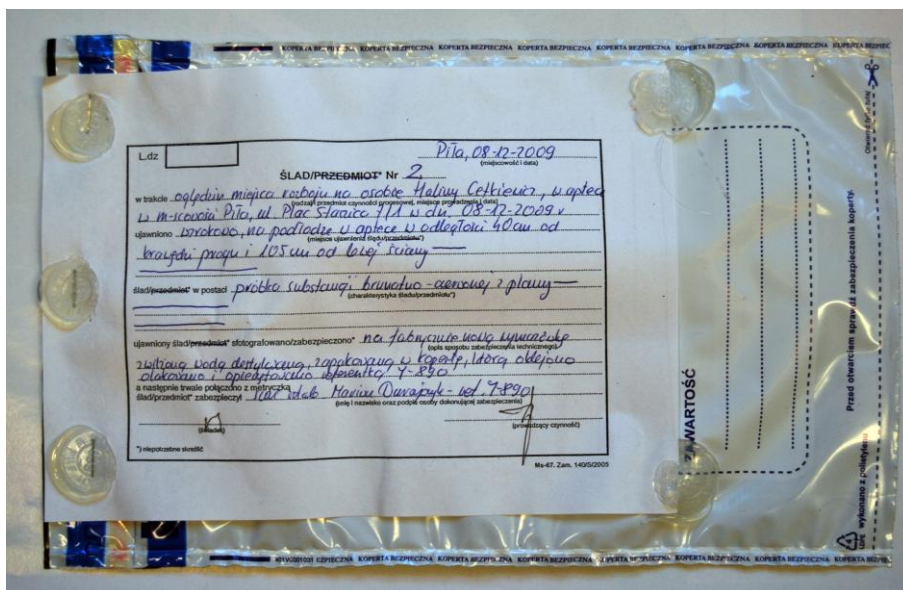 KOPERTA BEZPIECZNA KOPERTA BEZPIECZNA KOPERTA BEZPIECZNA KOPERTA BEZPIECZNA KOPERTA BEZPIECZNA KOPERTA BEZPIECZNA KOPERTA BEZPIEC
L.dz
Piła, 08-12-2009
(miejscowość i data)
ŚLAD/PRZEDMIOT* Nr 2
w trakcie oględzin miejsca rozboju na osobie Haliny Cetkiewicz, w aptece
(rodzaj i przedmiot czynności procesowej, miejsce prowadzenia i data)
w m-scowości Piła, ul. Plac Staszica 7/1 w dn. 08-12-2009 r
ujawniono wzrokowo, na podłodze w aptece w odległości 40cm od
(miejsce ujawnienia śladu/przedmiotu*)
krawędzi progu i 105 cm od lewej ściany
ślad/przedmiot* w postaci próbka substancji brunatno-czerwonej z plamy
(charakterystyka śladu/przedmiotu*)
ujawniony ślad/przedmiot* sfotografowano/zabezpieczono* na fabrycznie nową wymazówkę
(opis sposobu zabezpieczenia technicznego)
zwilżoną wodą destylowaną, zapakowaną w kopertę, którą oklejono
olakowano i opieczętowano referentką Y-890
a następnie trwale połączono z metryczką
ślad/przedmiot* zabezpieczył Marian ref. Y-890
(imię i nazwisko oraz podpis osoby dokonującej zabezpieczenia)
(świadek)
(prowadzący czynność)
*) niepotrzebne skreślić
Ms-67. Zam. 140/S/2005
ZAWARTOŚĆ
Przed otwarciem sprawdź zabezpieczenia koperty.
Otwierać tutaj
LDPE wykonano z polietylenu
KOPERTA BEZPIECZNA KOPERTA BEZPIECZNA KOPERTA BEZPIECZNA KOPERTA BEZPIECZNA KOPERTA BEZPIECZNA